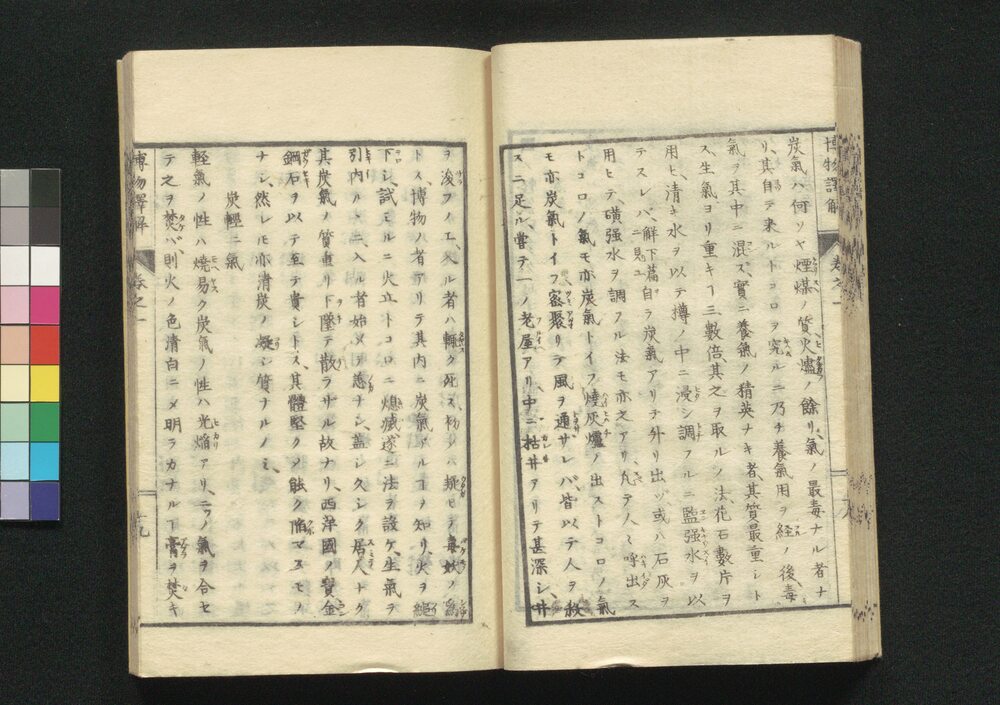 博物譯解 卷之一
炭氣ハ何リヤ煙煤ノ質火燼ノ餘リ氣ノ最毒ナル者ナ
リ、其自テ来ルトコロヲ究ルニ乃チ養氣用ヲ経ノ後毒
氣ヲ其中ニ混ス、實ニ養氣ノ精英ナキ者、其質最重シト
ス生氣ヨリ重キヿ三數倍、其之ヲ取ルノ法、花石數片ヲ
用ヒ、清キ水ヲ以テ撙ノ中ニ浸シ調フルニ監强水ヲ以
テスレバ、解下篇ニ見ユ自ラ炭氣アリテ外リ出ヅ或ハ石灰ヲ
用ヒテ磺强水ヲ調フル法モ亦之アリ凡テ人ノ呼出ス
トコロノ氣モ亦炭氣トイフ燒灰爐ノ出ストコロノ氣
モ亦炭氣トイフ密聚リテ風ヲ通サレバ皆以テ人ヲ殺
スニ足ル、嘗テ一ノ老屋アリ中ニ枯井アリテ甚深シ、井
ヲ浚フノ工、入ル者ハ輙ク死ス、初メハ疑ヒテ毒妖ノ爲
トス、博物ノ者アリテ其内ニ炭氣アルヿヲ知リ、火ヲ縋
下シ、試モルニ火立トコロニ熄滅遂ニ法ヲ設ケ、生氣ヲ
引内ルヽニ、入ル者始メテ恙ナシ、盖シ久シク居人ナク
其炭氣ノ質重リ下墜テ散ラザル故ナリ、西洋國ノ寳金
鋼石ヲ以テ至テ貴シトス、其體堅クノ融ク陥マヌモノ
ナシ、然レモ亦清炭ノ凝シ質ナルノミ、
炭輕二氣
軽氣ノ性ハ燒易ク炭氣ノ性ハ光焔アリ、二ツノ氣ヲ合セ
テ之ヲ焚バ、則火ノ色清白ニメ明ラカナルヿ膏ヲ焚キ
博物譯解 卷之一 九